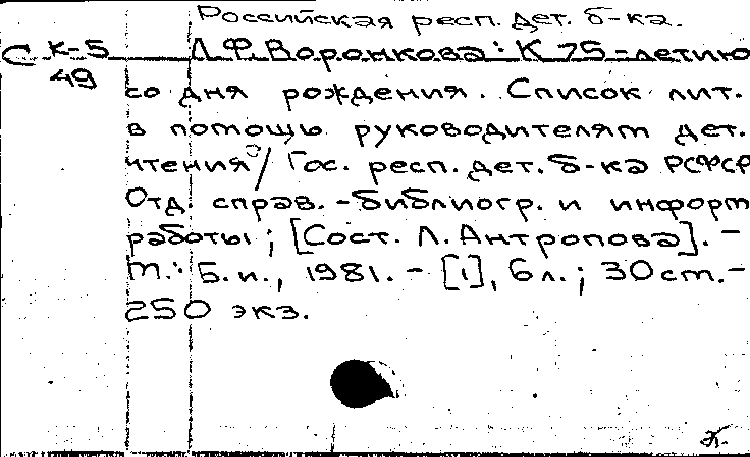 Российская респ. дет. б-ка.
С К-5 Л.Ф. Воронкова: К 75-летию
49
со дня рождения. Список лит.
в помощь руководителям дет.
чтения / Гос. респ. дет. б-ка РСФСР
Отд. справ.-библиогр. и информ
работы; [Сост. Л. Антропова]. –
М.: Б.и., 1981. – [1], 6 л.; 30 см. –
250 экз.